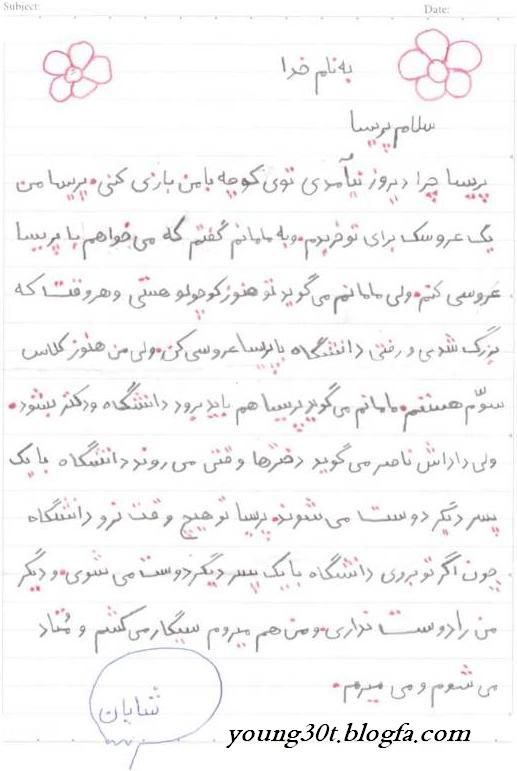 Subject:
Date:
به نام خدا
سلام پریسا
پریسا چرا دیروز نیآمدی توی کوچه با من بازی کنی. پریسا من
یک عروسک برای تو خریدم. و به مامانم گفتم که می‌خواهم با پریسا
عروسی کنم. ولی مامانم می‌گوید تو هنوز کوچولو هستی و هر وقت که
بزرگ شدی و رفتی دانشگاه با پریسا عروسی کن. ولی من هنوز کلاس
سوّم هستم. مامانم می‌گوید پریسا هم باید برود دانشگاه و دکتر بشود.
ولی داداش ناصر می‌گوید دخترها وقتی می‌روند دانشگاه با یک
پسر دیگر دوست می‌شوند. پریسا تو هیچ وقت نرو دانشگاه
چون اگر تو بروی دانشگاه با یک پسر دیگر دوست می‌شوی. و دیگر
من را دوست نداری. و من هم میروم سیگار می‌کشم و مُتاد
می‌شوم و می‌میرم.
شایان
young30t.blogfa.com